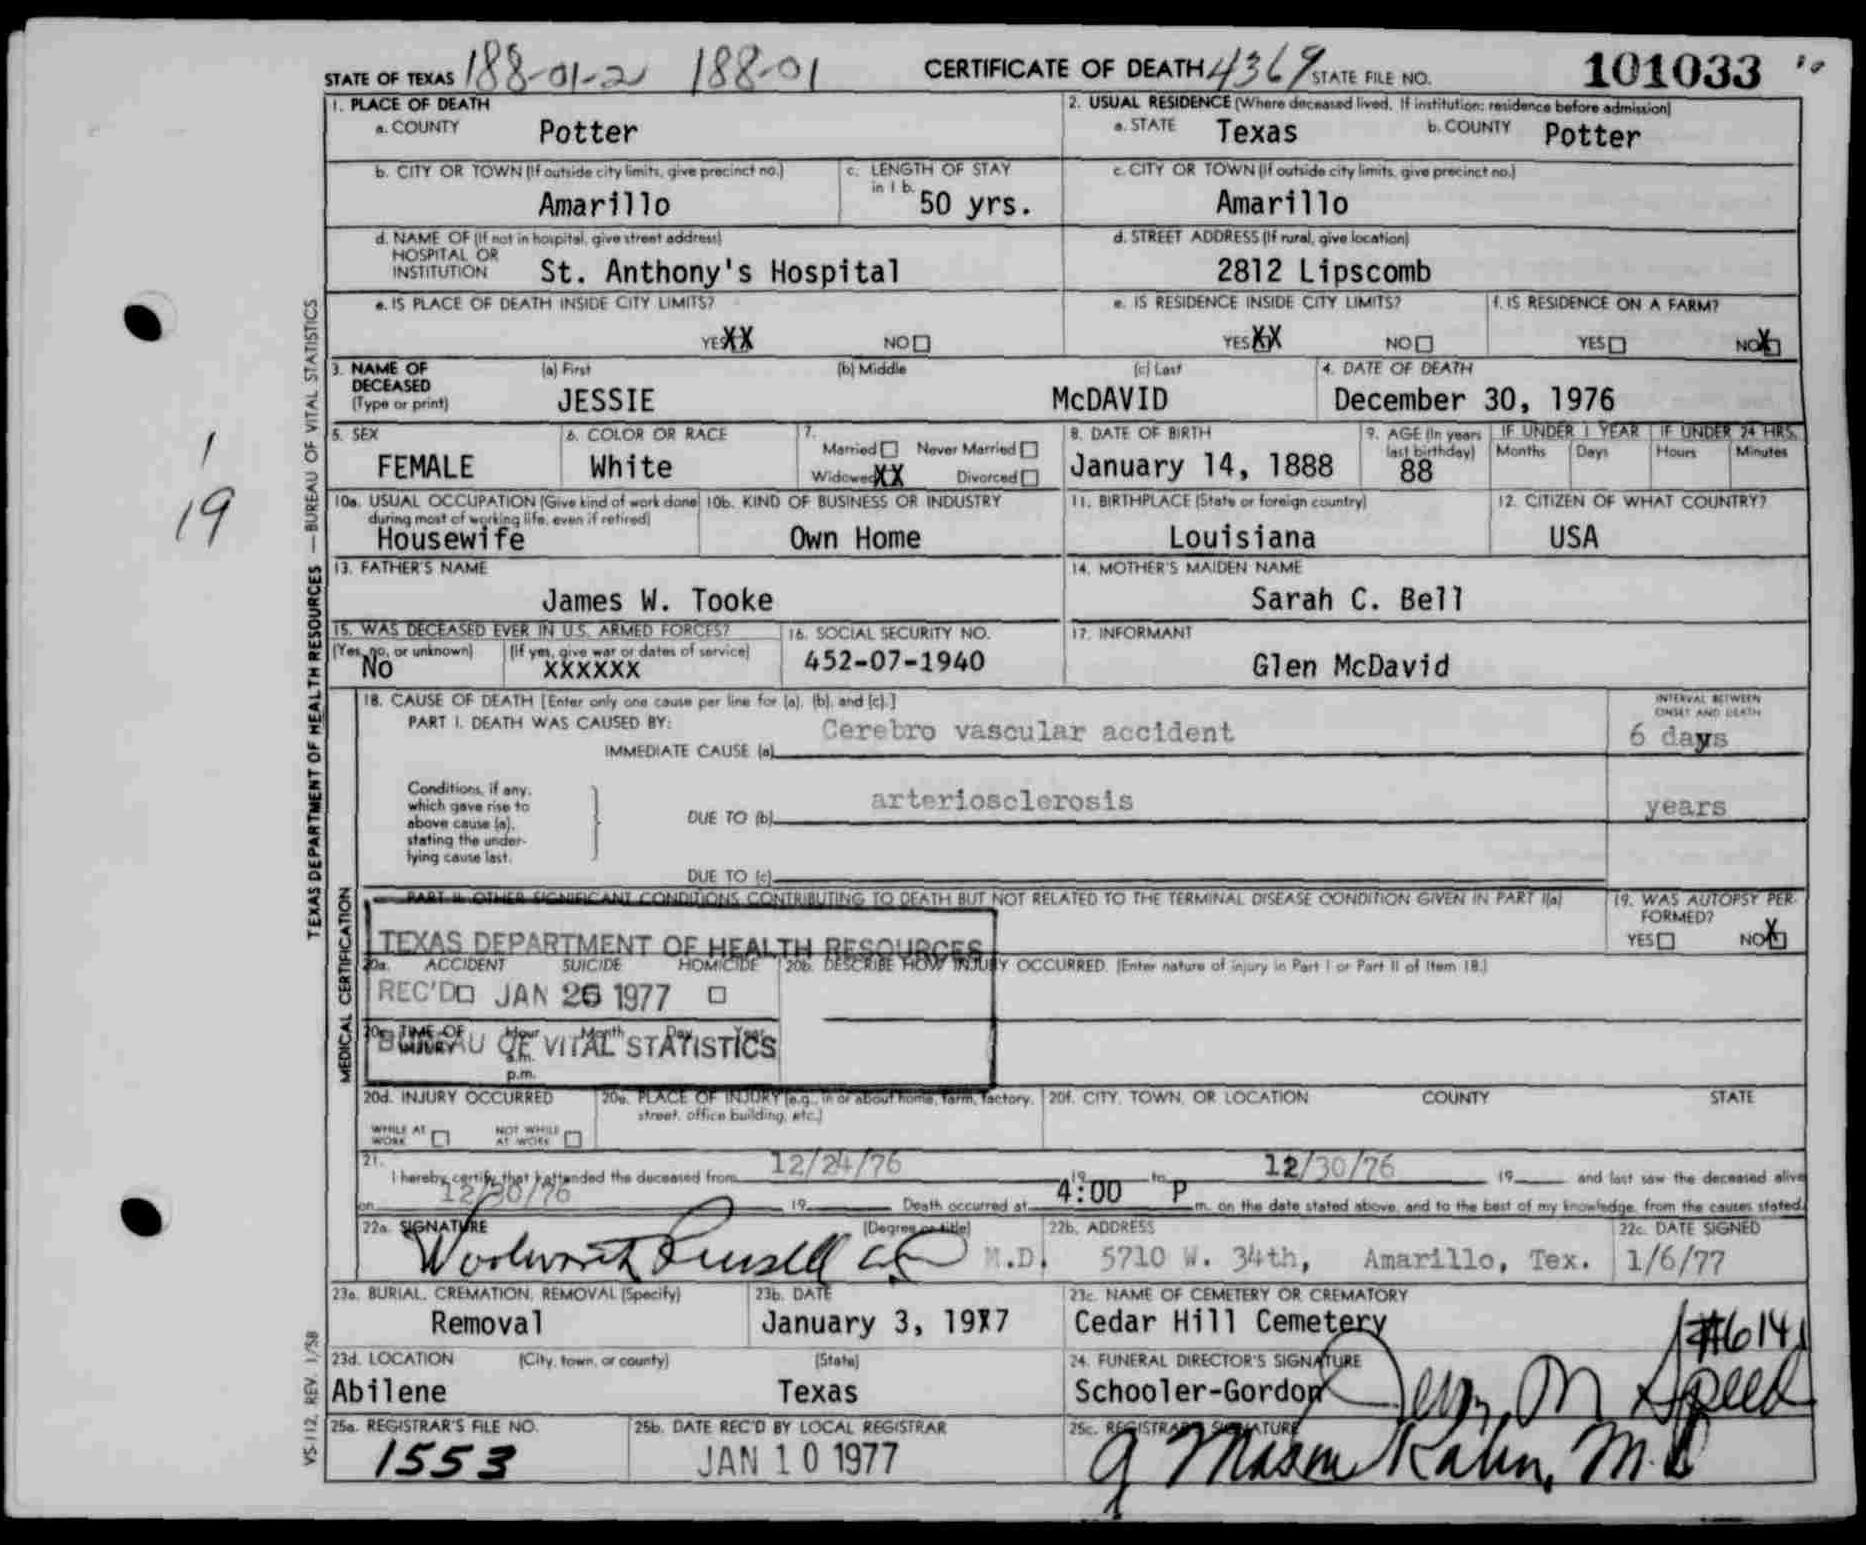 STATE OF TEXAS 188-01-2 188-01 CERTIFICATE OF DEATH 4369 STATE FILE NO. 101033
1. PLACE OF DEATH
a. COUNTY Potter
2. USUAL RESIDENCE (Where deceased lived. If institution: residence before admission)
a. STATE Texas b. COUNTY Potter
b. CITY OR TOWN (If outside city limits, give precinct no.) Amarillo
c. LENGTH OF STAY in 1 b. 50 yrs.
c. CITY OR TOWN (If outside city limits, give precinct no.) Amarillo
d. NAME OF (If not in hospital, give street address)
HOSPITAL OR
INSTITUTION St. Anthony's Hospital
d. STREET ADDRESS (If rural, give location)
2812 Lipscomb
e. IS PLACE OF DEATH INSIDE CITY LIMITS?
YES XX NO
e. IS RESIDENCE INSIDE CITY LIMITS?
YES XX NO
f. IS RESIDENCE ON A FARM?
YES NO X
3. NAME OF DECEASED (Type or print)
(a) First JESSIE (b) Middle (c) Last McDAVID
4. DATE OF DEATH
December 30, 1976
5. SEX FEMALE
6. COLOR OR RACE White
7. Married Never Married
Widowed XX Divorced
8. DATE OF BIRTH January 14, 1888
9. AGE (In years last birthday) 88
IF UNDER 1 YEAR Months Days
IF UNDER 24 HRS. Hours Minutes
10a. USUAL OCCUPATION (Give kind of work done during most of working life, even if retired)
Housewife
10b. KIND OF BUSINESS OR INDUSTRY
Own Home
11. BIRTHPLACE (State or foreign country)
Louisiana
12. CITIZEN OF WHAT COUNTRY?
USA
13. FATHER'S NAME
James W. Tooke
14. MOTHER'S MAIDEN NAME
Sarah C. Bell
15. WAS DECEASED EVER IN U.S. ARMED FORCES?
(Yes, no, or unknown) No
(If yes, give war or dates of service) XXXXXX
16. SOCIAL SECURITY NO.
452-07-1940
17. INFORMANT
Glen McDavid
18. CAUSE OF DEATH [Enter only one cause per line for (a), (b), and (c).]
PART I. DEATH WAS CAUSED BY:
IMMEDIATE CAUSE (a) Cerebro vascular accident
INTERVAL BETWEEN ONSET AND DEATH
6 days
Conditions, if any,
which gave rise to
above cause (a),
stating the under-
lying cause last.
DUE TO (b) arteriosclerosis years
DUE TO (c)
PART II. OTHER SIGNIFICANT CONDITIONS CONTRIBUTING TO DEATH BUT NOT RELATED TO THE TERMINAL DISEASE CONDITION GIVEN IN PART I(a)
19. WAS AUTOPSY PER-
FORMED?
YES NO X
TEXAS DEPARTMENT OF HEALTH RESOURCES
REC'D JAN 26 1977
BUREAU OF VITAL STATISTICS
20a. ACCIDENT SUICIDE HOMICIDE
20b. DESCRIBE HOW INJURY OCCURRED. (Enter nature of injury in Part I or Part II of Item 18.)
20c. TIME OF INJURY Hour Month Day Year
a.m.
p.m.
20d. INJURY OCCURRED
WHILE AT WORK NOT WHILE AT WORK
20e. PLACE OF INJURY (e.g., in or about home, farm, factory,
street, office building, etc.)
20f. CITY, TOWN, OR LOCATION COUNTY STATE
21. I hereby certify that I attended the deceased from 12/24/76 19 to 12/30/76 19 and last saw the deceased alive
on 12/30/76 19 Death occurred at 4:00 P m. on the date stated above, and to the best of my knowledge, from the causes stated.
22a. SIGNATURE (Degree or title)
Woolworth Russell M.D.
22b. ADDRESS
5710 W. 34th, Amarillo, Tex.
22c. DATE SIGNED
1/6/77
23a. BURIAL, CREMATION, REMOVAL (Specify)
Removal
23b. DATE
January 3, 1977
23c. NAME OF CEMETERY OR CREMATORY
Cedar Hill Cemetery
23d. LOCATION (City, town, or county) (State)
Abilene Texas
24. FUNERAL DIRECTOR'S SIGNATURE #6141
Schooler-Gordon Speed
25a. REGISTRAR'S FILE NO.
1553
25b. DATE REC'D BY LOCAL REGISTRAR
JAN 10 1977
25c. REGISTRAR'S SIGNATURE
J Mason Kahn, M.D
TEXAS DEPARTMENT OF HEALTH RESOURCES — BUREAU OF VITAL STATISTICS
MEDICAL CERTIFICATION
VS-112, REV. 1/58
1
19